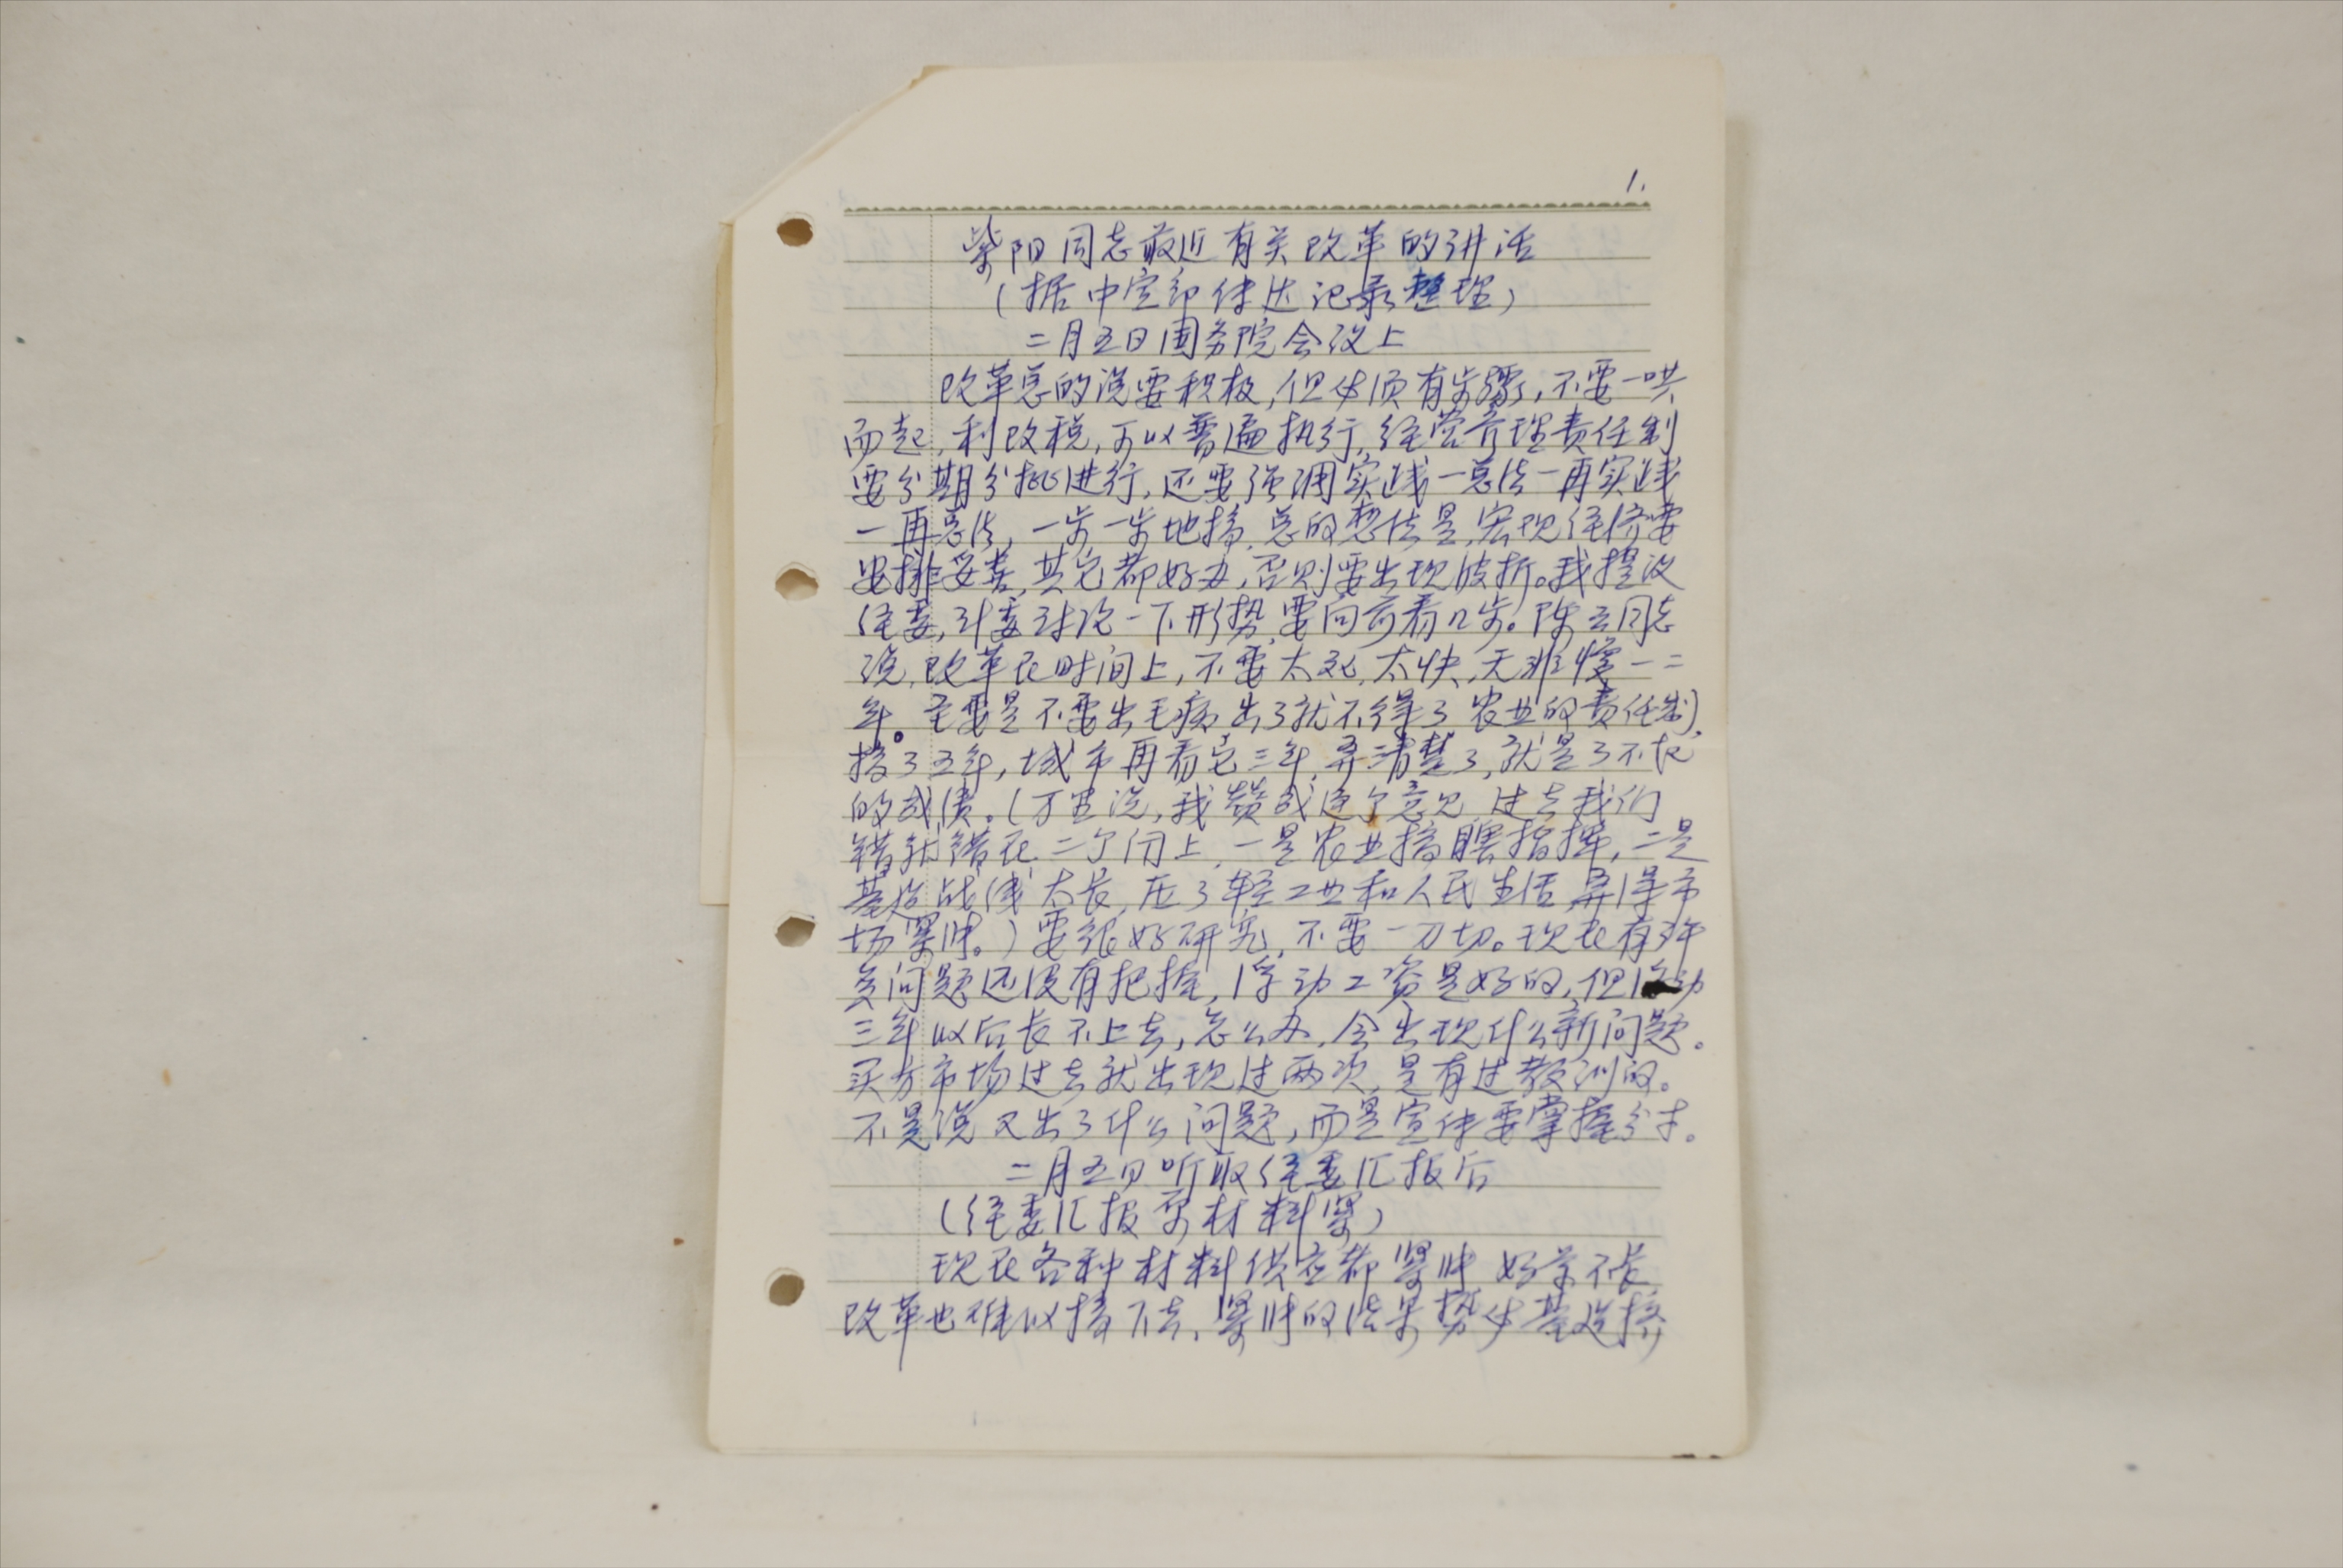 1.
紫阳同志最近有关改革的讲话
(据中宣部传达记录整理)
二月五日国务院会议上
改革总的说要积极,但必须有步骤,不要一哄
而起,利改税,可以普遍执行,经营管理责任制
要分期分批进行,还要强调实践—总结—再实践
—再总结,一步一步地搞,总的想法是,宏观经济要
安排妥善,其它都好办,否则要出现波折。我提议
经委,计委讨论一下形势,要向前看几步。陈云同志
说,改革在时间上,不要太死,太快,无非慢一二
年。主要是不要出毛病,出了就不得了,农业的责任制,
搞了五年,城市再看它三年,弄清楚了,就是了不起
的成绩。(万里说,我赞成这个意见,过去我们
错就错在二个问上,一是农业搞瞎指挥,二是
基建战线太长,压了轻工业和人民生活,弄得市
场紧张。)要很好研究,不要一刀切。现在有许
多问题还没有把握,浮动工资是好的,但浮动
三年以后长不上去,怎么办,会出现什么新问题。
买方市场过去就出现过两次,是有过教训的。
不是说又出了什么问题,而是宣传要掌握分寸。
二月五日听取经委汇报后
(经委汇报原材料紧)
现在各种材料供应都紧张,好景不长,
改革也难以搞下去,紧张的结果势必基建挤